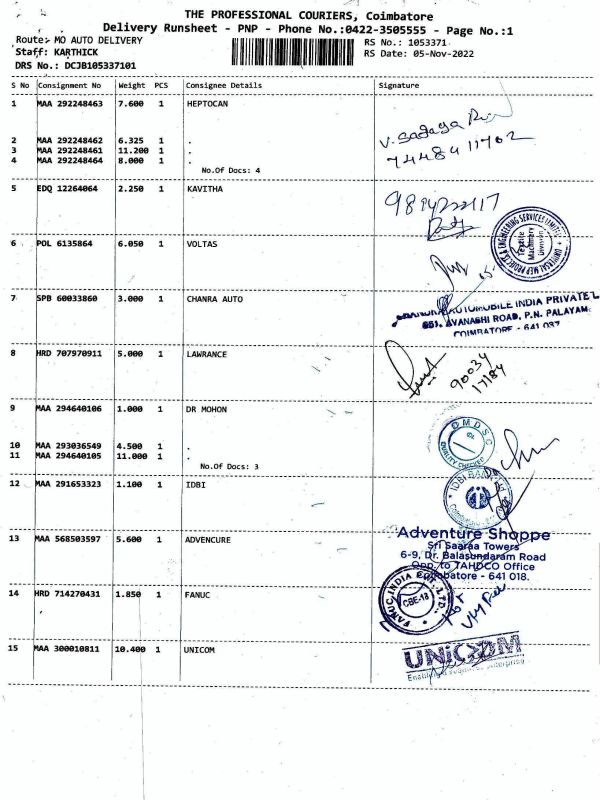 THE PROFESSIONAL COURIERS, Coimbatore
Delivery Runsheet - PNP - Phone No.:0422-3505555 - Page No.:1
Route:- MO AUTO DELIVERY
RS No.: 1053371
Staff: KARTHICK
RS Date: 05-Nov-2022
DRS No.: DCJB105337101
S No Consignment No Weight PCS Consignee Details Signature
1 MAA 292248463 7.600 1 HEPTOCAN
V. Sagaya
7448411702
2 MAA 292248462 6.325 1 .
3 MAA 292248461 11.200 1 .
4 MAA 292248464 8.000 1 .
No.Of Docs: 4
5 EDQ 12264064 2.250 1 KAVITHA
UNIVERSAL MEP PROJECTS & ENGINEERING SERVICES LIMITED
Textile
Machinery
Division
6 POL 6135864 6.050 1 VOLTAS
7 SPB 60033860 3.000 1 CHANRA AUTO
AUTOMOBILE INDIA PRIVATE L
AVANASHI ROAD, P.N. PALAYAM
COIMBATORE - 641 037
8 HRD 707970911 5.000 1 LAWRANCE
90034
17184
9 MAA 294640106 1.000 1 DR MOHON
DMDSC
QUALITY CHECKED
10 MAA 293036549 4.500 1 .
11 MAA 294640105 11.000 1 .
No.Of Docs: 3
12 MAA 291653323 1.100 1 IDBI
IDBI BANK
13 MAA 568503597 5.600 1 ADVENCURE
Adventure Shoppe
Sri Saaraa Towers
6-9, Dr. Balasundaram Road
Opp. to TAHDCO Office
Coimbatore - 641 018.
14 HRD 714270431 1.850 1 FANUC
FANUC INDIA PVT. LTD.
CBE-18
15 MAA 300010811 10.400 1 UNICOM
UNICOM